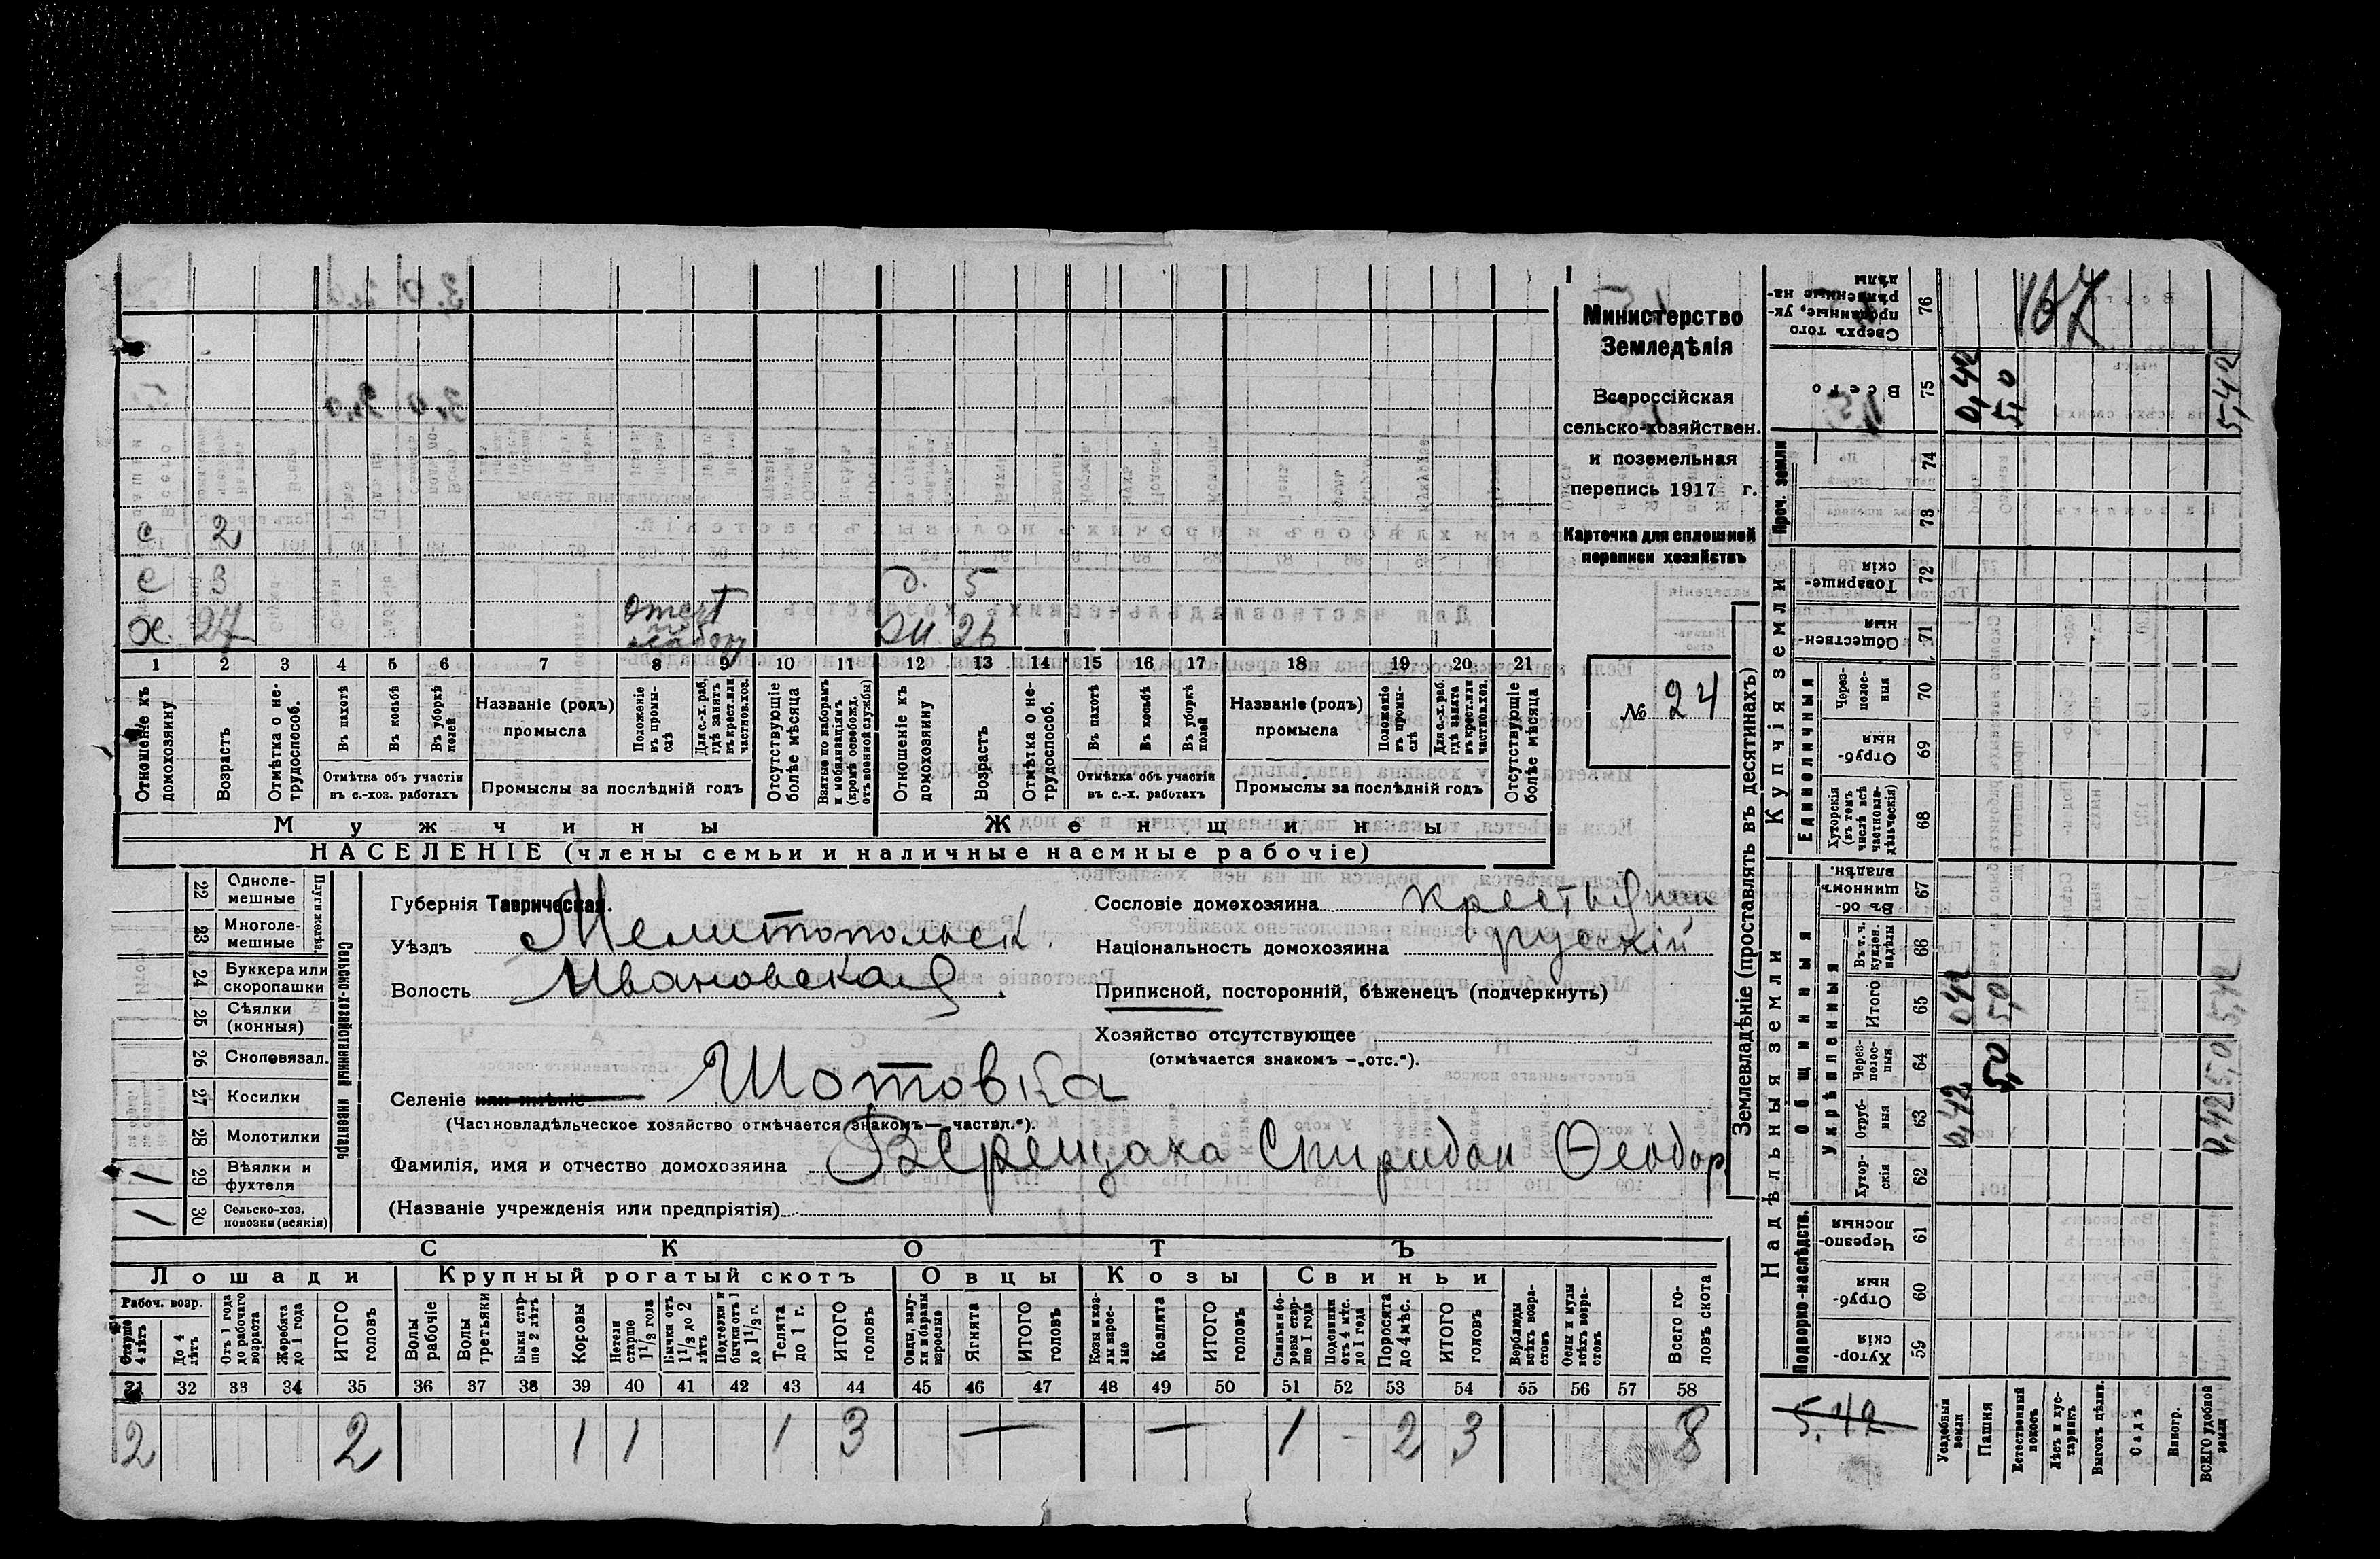 167
с 2
с 3 д. 5
х. 27 ж 26
1 2 3 4 5 6 7 8 9 10 11 12 13 14 15 16 17 18 19 20 21
Отношеніе къ домохозяину
Возрастъ
Отмѣтка о нетрудоспособ.
Въ пахотѣ
Въ косьбѣ
Въ уборкѣ полей
Отмѣтка объ участіи
въ с.-хоз. работахъ
Названіе (родъ)
промысла
Положеніе въ промыслѣ
Для с.-х. раб, гдѣ занятъ въ крест. или частнов. хоз.
Промыслы за послѣдній годъ
Отсутствующіе болѣе мѣсяца
Взятые по наборамъ и мобилизаціямъ (кромѣ освобожд. отъ военной службы)
Отношеніе къ домохозяину
Возрастъ
Отмѣтка о нетрудоспособ.
Въ пахотѣ
Въ косьбѣ
Въ уборкѣ полей
Отмѣтка объ участіи
въ с.-х. работахъ
Названіе (родъ)
промысла
Положеніе въ промыслѣ
Для с.-х. раб. гдѣ занята въ крест. или частнов. хоз.
Промыслы за послѣдній годъ
Отсутствующіе болѣе мѣсяца
Мужчины Женщины
НАСЕЛЕНІЕ (члены семьи и наличные наемные рабочіе)
Министерство
Земледѣлія
Всероссійская
сельско-хозяйствен.
и поземельная
перепись 1917 г.
Карточка для сплошной
переписи хозяйствъ
№ 24
Губернія Таврическая.
Уѣздъ Мелитопольск.
Волость Ивановская
Селеніе или имѣніе Шотовка
(Частновладѣльческое хозяйство отмѣчается знакомъ — „частвл.“).
Фамилія, имя и отчество домохозяина Верещака Спиридон Ѳеодор
(Названіе учрежденія или предпріятія)
Сословіе домохозяина крестьянин
Національность домохозяина русскій
Приписной, посторонній, бѣженецъ (подчеркнуть)
Хозяйство отсутствующее
(отмѣчается знакомъ —„отс.“).
Сельско-хозяйственный инвентарь
Плуги желѣз.
22 Одноле-
мешные
23 Многоле-
мешные
24 Буккера или
скоропашки
25 Сѣялки
(конныя)
26 Сноповязал.
27 Косилки
28 Молотилки
1 29 Вѣялки и
фухтеля
1 30 Сельско-хоз.
повозки (всякія)
СКОТЪ
Лошади Крупный рогатый скотъ Овцы Козы Свиньи
Рабоч. возр.
Старше 4 лѣтъ
До 4 лѣтъ
Отъ 1 года до рабочаго возраста
Жеребята до 1 года
ИТОГО головъ
Волы рабочіе
Волы третьяки
Быки старше 2 лѣтъ
Коровы
Нетели старше 1 1/2 года
Бычки отъ 1 1/2 до 2 лѣтъ
Подтелки и бычки отъ 1 до 1 1/2 г.
Телята до 1 г.
ИТОГО головъ
Овцы, валухи и бараны взрослые
Ягнята
ИТОГО головъ
Козы и козлы взрослые
Козлята
ИТОГО головъ
Свиньи и боровы старше 1 года
Подсвинки отъ 4 мѣс. до 1 года
Поросята до 4 мѣс.
ИТОГО головъ
Верблюды всѣхъ возрастовъ
Ослы и мулы всѣхъ возрастовъ
Всего головъ скота
31 32 33 34 35 36 37 38 39 40 41 42 43 44 45 46 47 48 49 50 51 52 53 54 55 56 57 58
2 2 1 1 1 3 — — 1 - 2 3 8
Землевладѣніе (проставлять въ десятинахъ)
Купчія земли
Надѣльныя земли
Проч. земли
Единоличныя
Общинныя
Укрѣпленныя
Подворно-наслѣдств.
Сверхъ того проданные, укрѣпленные надѣлы 76
Всего 75 0,42 5,0 5,42
74
73
Товарищескія 72
Общественныя 71
Черезполосныя 70
Отрубныя 69
Хуторскія (въ томъ числѣ всѣ частновладѣльческія) 68
Въ общинномъ владѣн. 67
Въ т. ч. куплен. надѣлы 66
Итого 65 0,42 5,0 5,42
Черезполосныя 64 5,0 5,0
Отрубныя 63 0,42 0,42
Хуторскія 62
Черезполосныя 61
Отрубныя 60
Хуторскія 59
5,42
Усадебныя земли
Пашня
Естественный покосъ
Лѣсъ и кустарникъ
Выгонъ цѣлин.
Садъ
Виногр.
ВСЕГО удобной земли